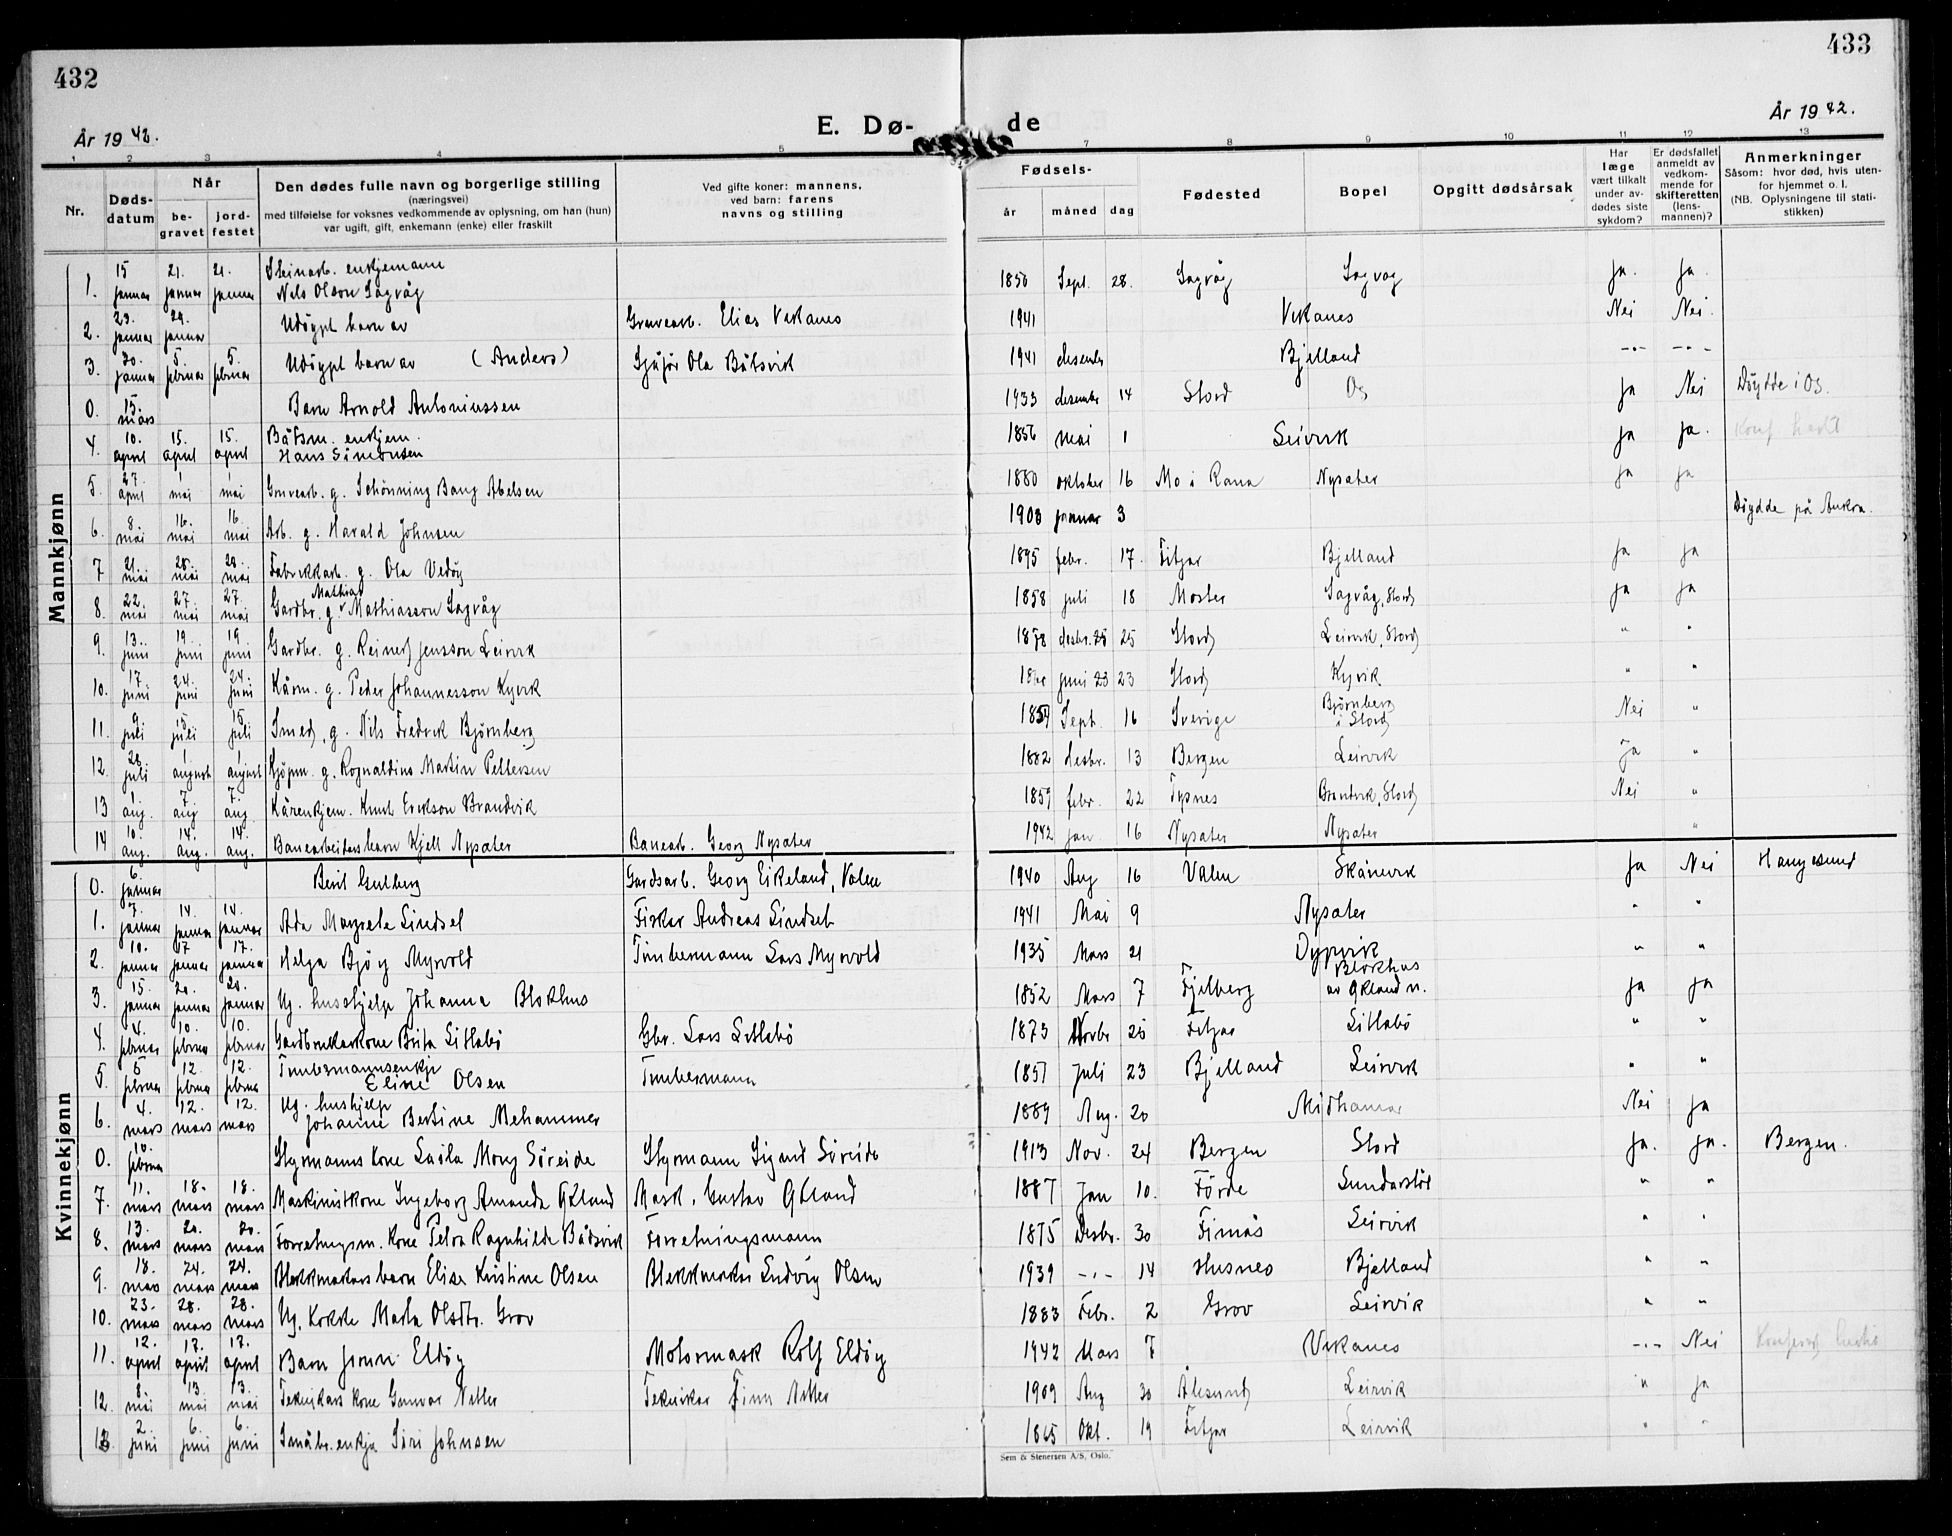 432
433
År 1942.
År 1942.
E. Dø-
de
1 2 3 4 5 7 8 9 10 11 12 13
Nr.
Døds-
datum
Når
be-
gravet
jord-
festet
Den dødes fulle navn og borgerlige stilling
(næringsvei)
med tilføielse for voksnes vedkommende av oplysning, om han (hun)
var ugift, gift, enkemann (enke) eller fraskilt
Ved gifte koner: mannens,
ved barn: farens
navns og stilling
Fødsels-
år måned dag
Fødested
Bopel
Opgitt dødsårsak
Har
læge
vært tilkalt
under av-
dødes siste
sykdom?
Er dødsfallet
anmeldt av
vedkom-
mende for
skifteretten
(lens-
mannen)?
Anmerkninger
Såsom: hvor død, hvis uten-
for hjemmet o. l.
(NB. Oplysningene til stati-
stikken)
Mannkjønn
1. 15 januar 21. januar 21. januar Steinarb. enkjemann Nils Olson Sagvåg 1850 Sept. 28. Sagvåg Sagvåg Ja. Ja.
2. 23. januar januar Udøypt barn av Gruvearb. Elias Vikanes 1941 Vikanes Nei Nei.
3. 30. januar 5. februar 5. februar Udøypt barn av (Anders) Sjåfør Ola Båtsvik 1941 desember Bjelland -"- -"-
0. 15. mars Barn Arnold Antoniussen 1933 desember 14 Stord Os Ja Nei Døydde i Os.
4. 10. april 15. april 15. april Båtsm. enkjem. Hans Simonsen 1856 mai 1 Leirvik Ja Ja.
5. 27. april 1 mai 1 mai Gruvearb. g. Schönning Bang Abelsen 1880 oktober 16 Mo i Rana Nysæter Ja Ja
6. 8. mai 16. mai 16. mai Arb. g. Harald Johnsen 1908 januar 3 Døydde på
7 21. mai 28. mai 28. mai Fabrikkarb. g. Ola Vedøy 1895 febr. 17. Fitjar Bjelland Ja Ja
8. 22. mai 27. mai 27. mai Gardbr. g. Mathias Mathiasson Sagvåg 1858 juli 18 Moster Sagvåg, Stord Ja Ja
9. 13. juni 19 juni 19 juni Gardbr. g. Reinert Jensson Leirvik 1878 desbr. 25 25 Stord Leirvik, Stord " "
10. 17. juni 24. juni 24. juni Kårm. g. Peder Johannesson Kyvik juni 23 23 Stord Kyvik " "
11. 9 juli 15. juli 15. juli Smed, g. Nils Fredrik Bjørnberg Sept. 16 Sverige Bjørnberg i Stord Nei "
12. 28. juli 1. august 1. august Kjøpm. g. Rognaldius Martin Pettersen 1882 desbr. 13 Bergen Leirvik Ja "
13 1. aug. 7. aug 7. aug. Kårenkjem. Knut Erikson Brandvik 1859 febr. 22 Tysnes Brandvik, Stord Nei "
14 10. aug. 14. aug. 14. aug. Banearbeidars barn Kjell Nysæter Banearb. Georg Nysæter 1942 jan 16 Nysæter Nysæter "
Kvinnekjønn
0. 6. januar Berit Gulberg Gardsarb. Georg Eikeland, Valen 1940 Aug 16 Valen Skånevik Ja Nei Haugesund
1. 7. januar 14. januar 14. januar Ada Margrete Lindset Fisker Andreas Lindset 1941 Mai 9 Nysæter " "
2. 10. januar 17 januar 17. januar Helga Bjørg Myrvold Timbermann Lars Myrvold 1935 Mars 21 Dypvik " "
3. 15. januar 20. januar 20. januar Ug. husshjelp Johanna Blokhus 1852 Mars 7 Fjelberg Blokhus av Økland n. Ja Ja
4. 4. februar 10. februar 10. februar Gardbrukarkone Brita Litlabø Gbr. Lars Litlabø 1873 Novbr 25 Fitjar Litlabø " "
5. 5 februar 12. februar 12. februar Timbermannsenkje Eline Olsen Timbermann 1857 Juli 23 Bjelland Leirvik " "
6. 4. mars 12. mars 12. mars Ug. hushjelp Johanne Bertine Mehammer 1889 Aug. 20 Midhamar Nei Ja
0. 10. februar Styrmanns kone Laila Mong Søreide Styrmann Sigurd Søreide 1913 Nov. 24 Bergen Stord Ja. Ja. Bergen.
7. 11. mars 18. mars 18. mars Maskinistkone Ingeborg Amanda Økland Mask. Gustav Økland 1887 Jan 10. Førde Sunderstøl " "
8. 13. mars 20. mars 20. mars Forretningsm. kone Petra Ragnhilde Bådsvik Forretningsmann 1875 Desbr. 30 Finnås Leirvik " "
9. 18. mars 24. mars 24. mars Blekkmakars barn Elise Kristine Olsen Blekkmaker Ludvig Olsen 1939 -"- 14 Husnes Bjelland " "
10. 23. mars 28. mars 28. mars Ug. Kokke Marta Olsdtr. Grov 1883 Febr. 2 Grov Leirvik " "
11. 12. april 17. april 17. april Barn Jorunn Eldøy Motormask Rolf Eldøy 1942 Mars 7 Vikanes -"- Nei
12. 8. mai 13. mai 13. mai Teknikars kone Gunvor Natter Tekniker Finn Natter 1909 Aug 30 Ålesund Leirvik " Ja
13. 2. juni 6. juni 6. juni Småbr. enkja Siri Johnsen 1865 Okt. 19 Fitjar Leirvik " "
Sem & Stenersen A/S, Oslo.